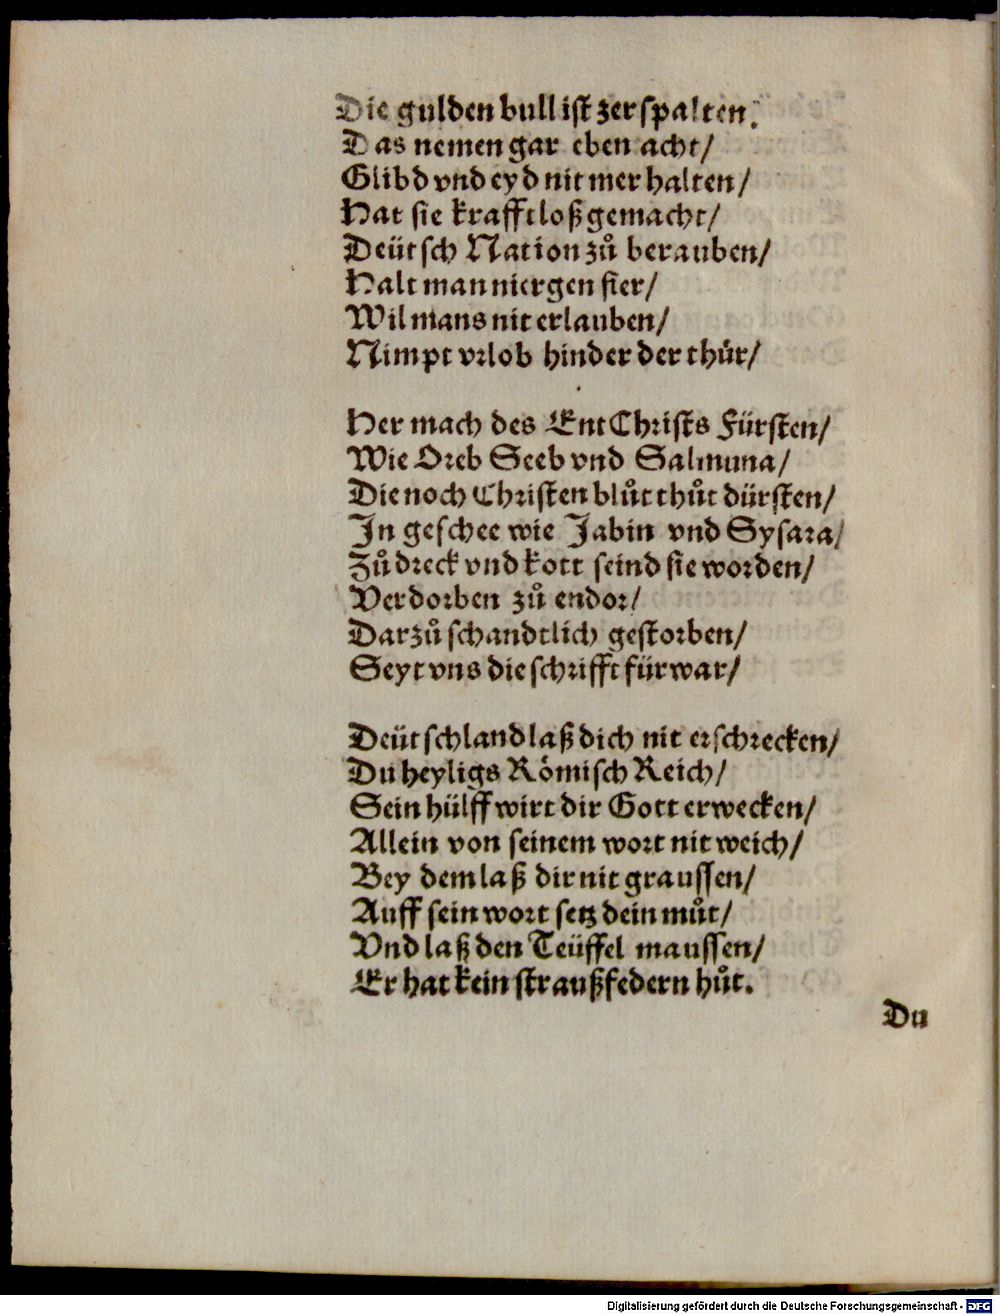 Die gulden bull ist zerspalten.
Das nemen gar eben acht/
Glibd vnd eyd nit mer halten/
Hat sie krafftloß gemacht/
Deütsch Nation zů berauben/
Halt man niergen fier/
Wil mans nit erlauben/
Nimpt vrlob hinder der thür/
Her mach des EntChrists Fürsten/
Wie Oreb Seeb vnd Salmuna/
Die noch Christen blůt thůt dürsten/
In geschee wie Jabin vnd Sysara/
Zů dreck vnd kott seind sie worden/
Verdorben zů endor/
Darzů schandtlich gestorben/
Seyt vns die schrifft fürwar/
Deütschland laß dich nit erschrecken/
Du heyligs Römisch Reich/
Sein hülff wirt dir Gott erwecken/
Allein von seinem wort nit weich/
Bey dem laß dir nit graussen/
Auff sein wort setz dein můt/
Vnd laß den Teüffel maussen/
Er hat kein straußfedern hůt.
Du
Digitalisierung gefördert durch die Deutsche Forschungsgemeinschaft - DFG